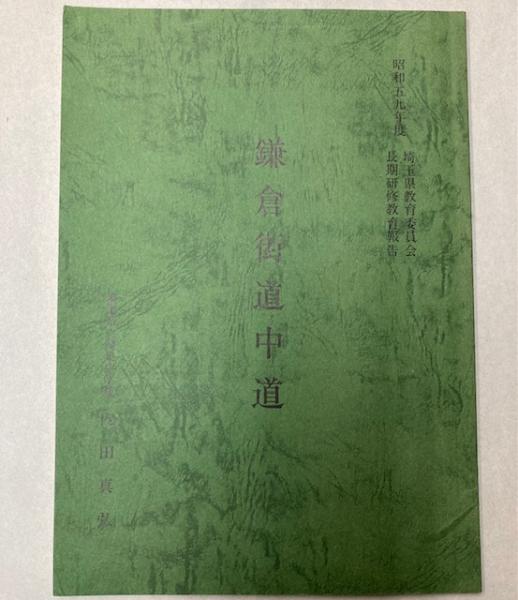 昭和五九年度
埼玉県教育委員会
長期研修教育報告
鎌倉街道中道
田真弘